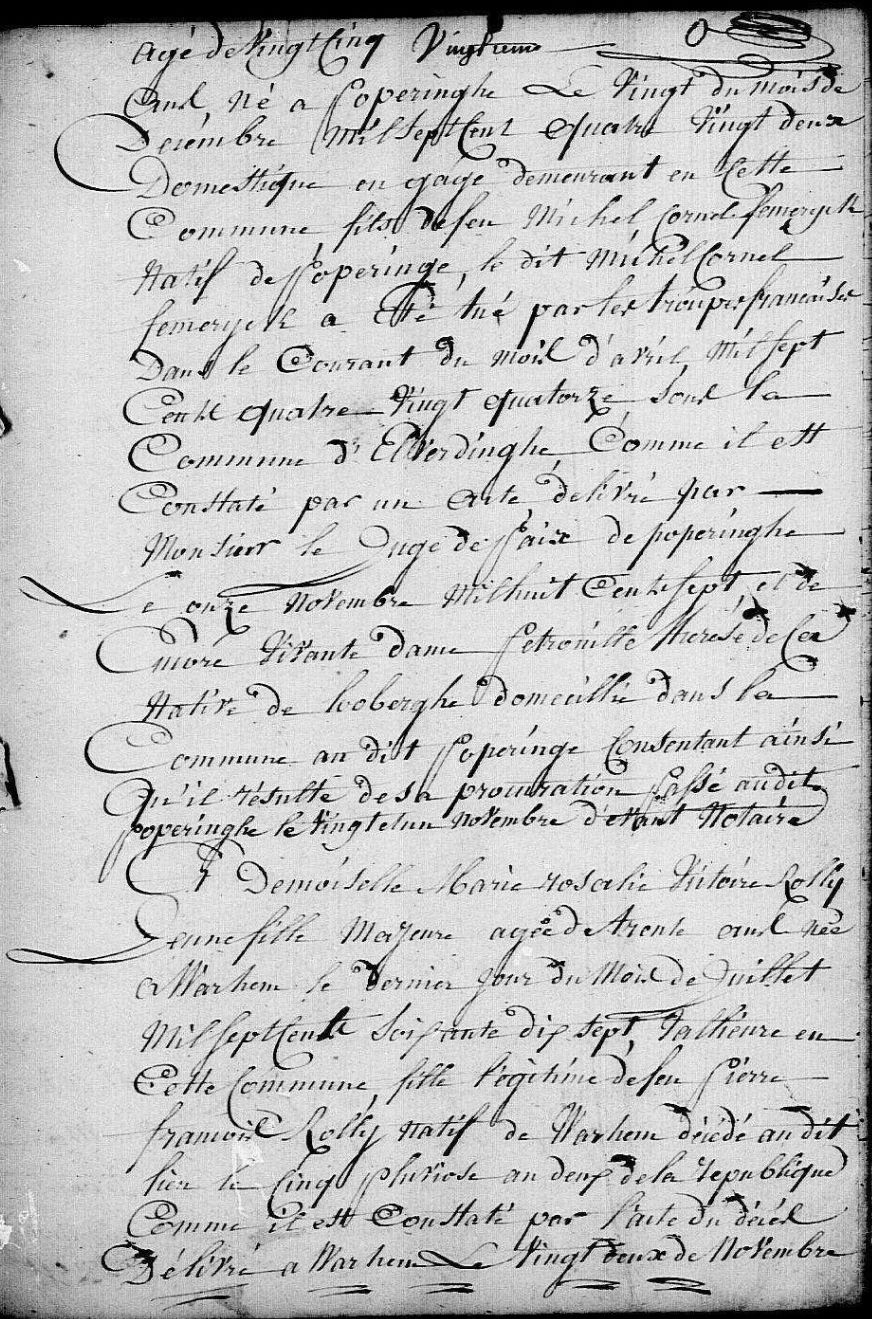 agé de Vingt Cinq Vingtieme
ans Né a Poperinghe Le Vingt du mois de
Decémbre Mil sept Cent quatre Vingt deux
Domestique en gage demeurant en Cette
Commune fils de feu Michel Cornel femeryck
Natif de Poperinge, le dit Michel Cornel
femeryck a Eté tué par les troupes francaises
Dans le Courant du mois d'avril Mil sept
Cent quatre Vingt quatorze sous la
Commune d'Elverdinghe Comme il est
Constaté par un acte delivré par
Monsieur le Juge de Paix de poperinghe
Le onze Novembre Mil huit Cent sept, et de
mére Vivante dame Petronille therése de
Native de looberghe domeciliée dans la
Commune au dit Poperinge Consentant ainsi
Qu'il résulte de sa procuration Passé au dit
poperinghe le Vingt et un Novembre d'evant Notaire
Et Demoiselle Marie rosalie Victoire Rolly
Jeune fille Majeure agée de trente ans née
a Warhem le dernier jour du Mois de Juillet
Mil sept Cent soixante dix sept, Tallieure en
Cette Commune fille légitime de feu Pierre
francois Rolly natif de Warhem décédé au dit
lieu le Cinq pluviose an deux de la republique
Comme il est Constaté par l'acte du décés
Délivré a Warhem Le Vingt deux de Novembre